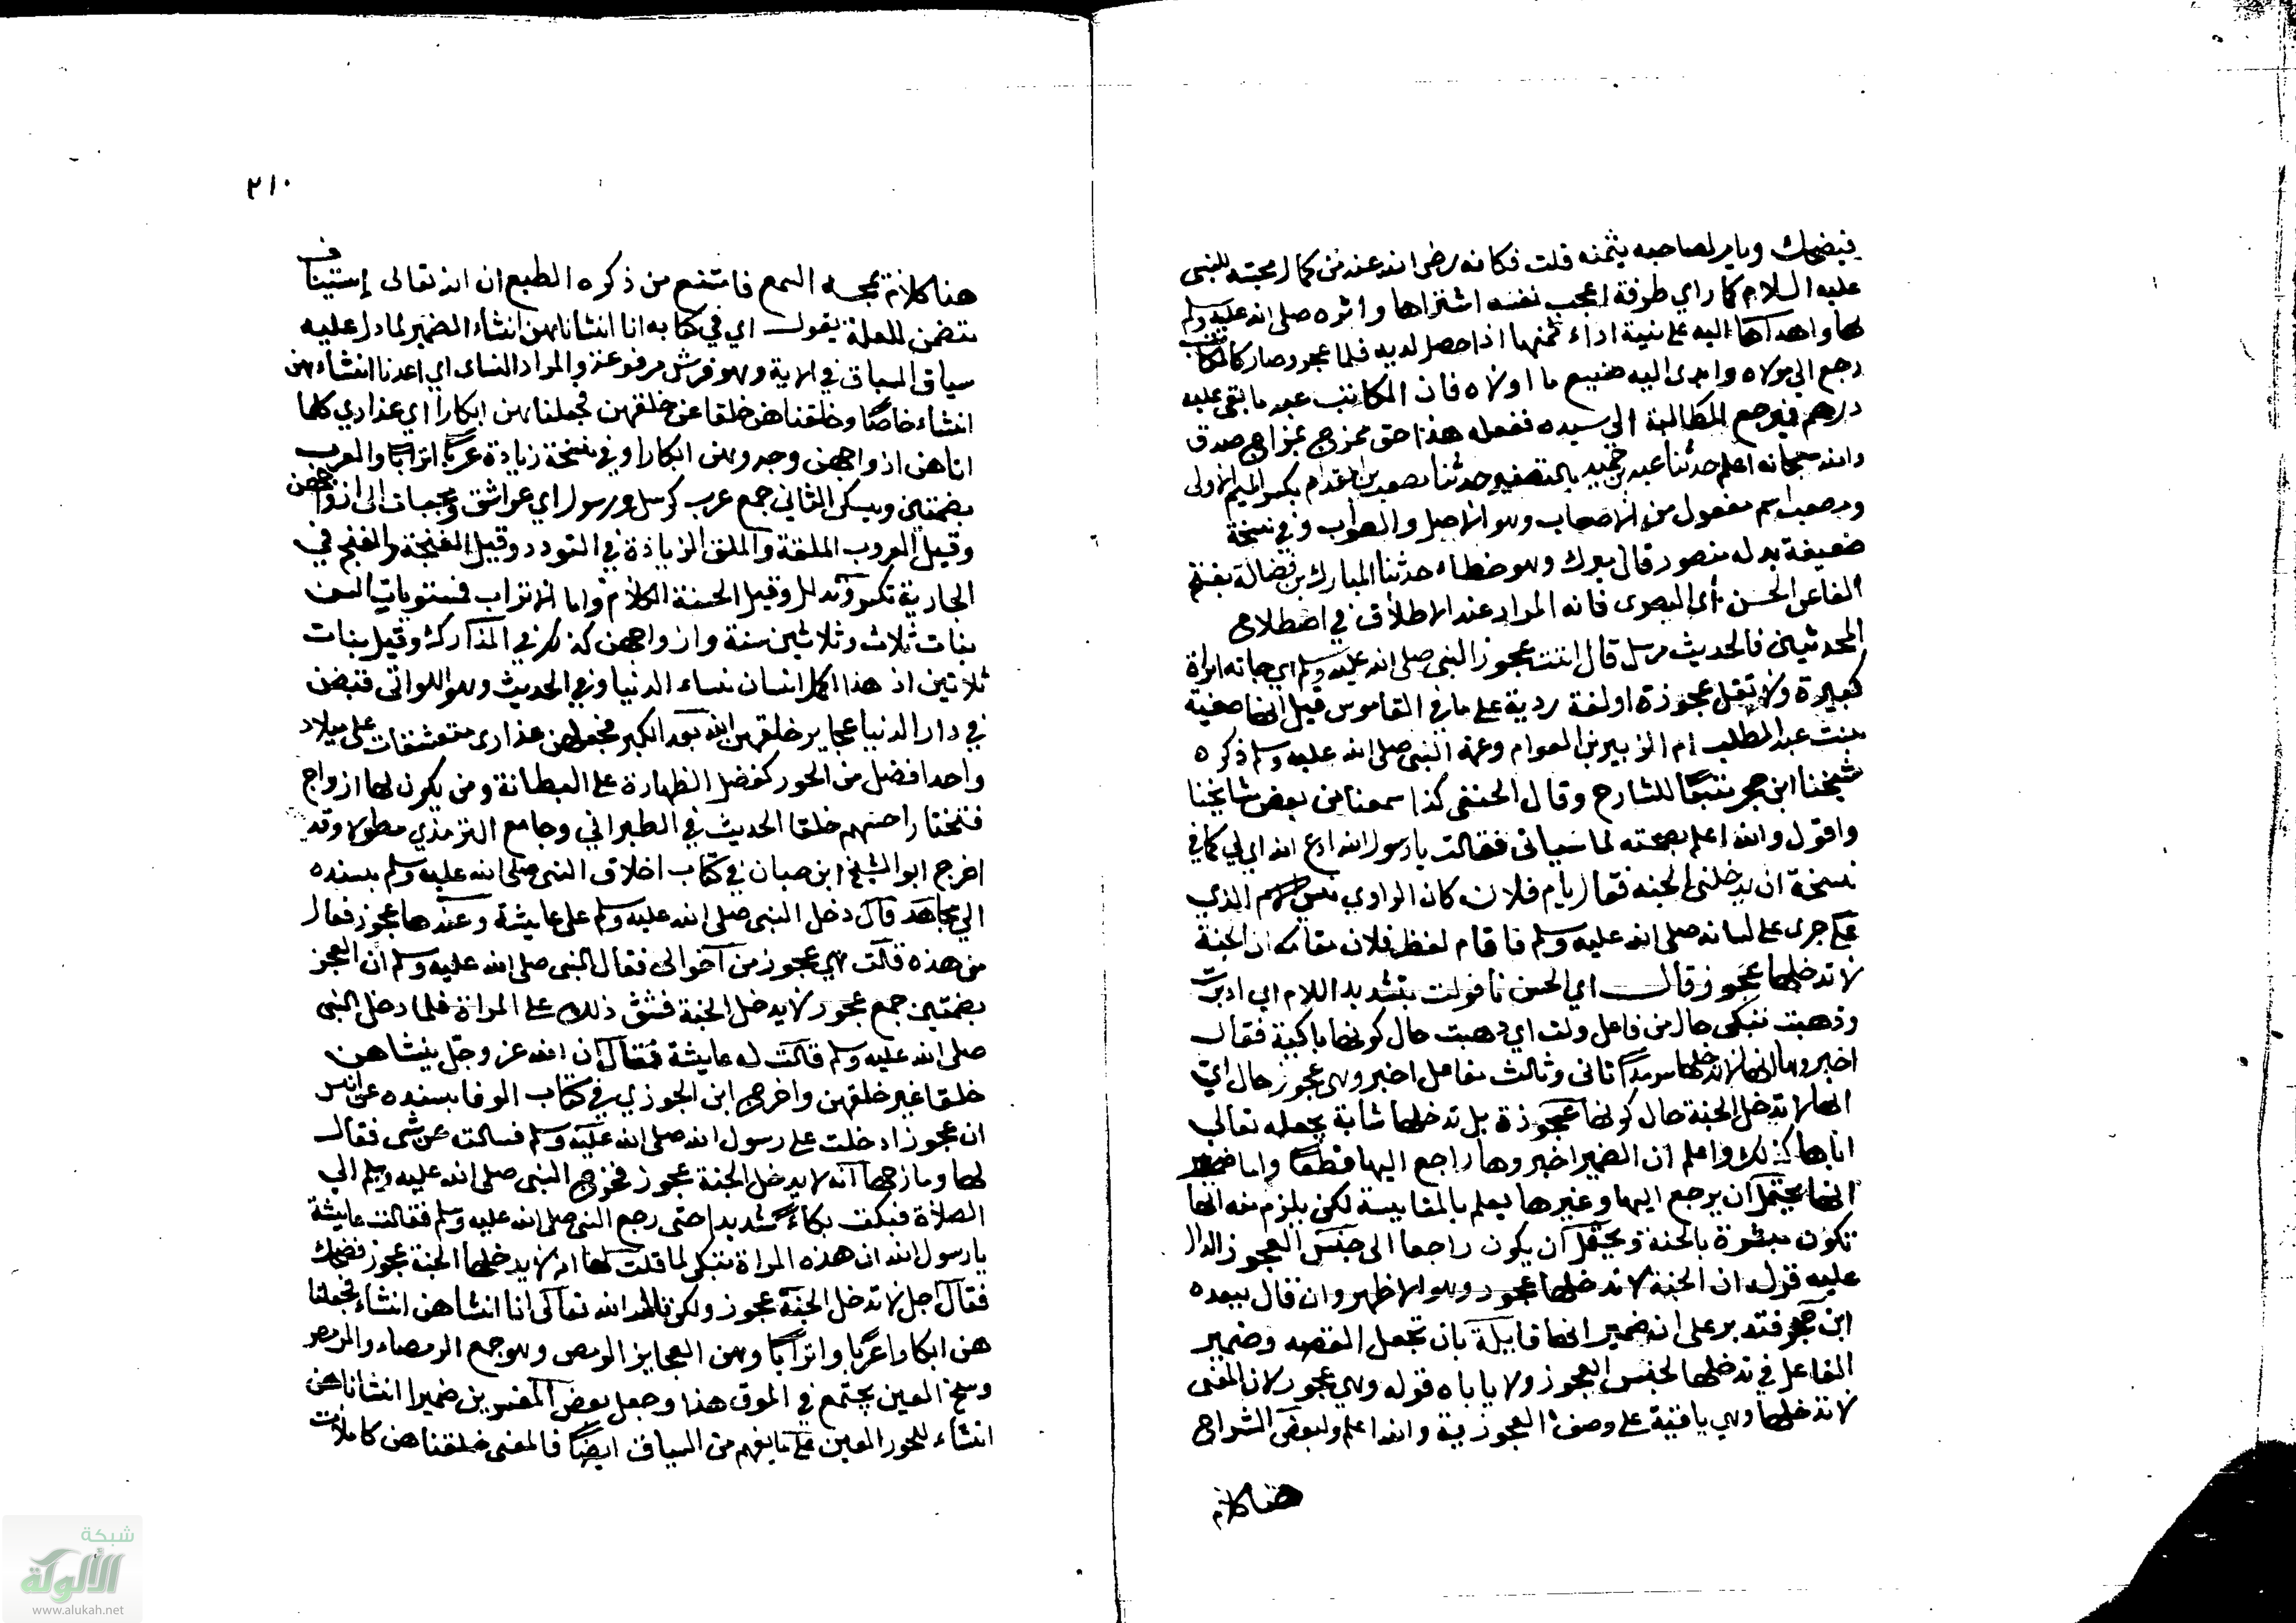 فيضحك ويامر لصاحبه بثمنه قلت فكانه رضي الله عنه من كمال محبته للنبي
عليه السلام كما راي طرفة اعجب نفسه اشتراها واثره صلى الله عليه وسلم
لها واهداها اليه على نية اداء ثمنها اذا حصل لديه فلما عجز وصار كالمكاتب
رجع الى مولاه وابدى اليه صنيع ما اولاه فان المكاتب عبد ما بقي عليه
درهم فيرجع المطالبة الى سيده ففعله هذا حق ممزوج بمزاج صدق
والله سبحانه اعلم حدثنا عبد بن حميد بالتصغير حدثنا مصعب بن المقدام بكسر الميم الاولى
ومصعب اسم مفعول من الاصعاب وهو الاصل والصواب وفي نسخة
ضعيفة بدله منصور قال ميرك وهو خطاء حدثنا المبارك بن فضالة بفتح
الفا عن الحسن أي البصرى فانه المراد عند الاطلاق في اصطلاح
المحدثين فالحديث مرسل قال اتت عجوز النبي صلى الله عليه وسلم اي جاته امراة
كبيرة ولا تقل عجوزة او لغة ردية على ما في القاموس قيل انها صفية
بنت عبد المطلب ام الزبير بن العوام وعمة النبي صلى الله عليه وسلم ذكره
شيخنا ابن حجر تبعًا للشارح وقال الحنفي كذا سمعنا من بعض مشايخنا
واقول والله اعلم بصحته لما سياتى فقالت يا رسول الله ادع الله اي لي كما في
نسخة ان يدخلني الجنة فقال يا ام فلان كان الراوي نسي الاسم الذي
جرى على لسانه صلى الله عليه وسلم فاقام لفظ فلان مقامه ان الجنة
لا تدخلها عجوز قال اي الحسن فولت بتشديد اللام اي ادبرت
وذهبت تبكى حال من فاعل ولت اي ذهبت حال كونها باكية فقال
اخبروها انها لا تدخلها ثانى وثالث مفاعيل اخبر وهي عجوز حال اي
انها لا تدخل الجنة حال كونها عجوزة بل تدخلها شابة بجعله تعالى
اياها كذلك واعلم ان الضمير اخبروها راجع اليها قطعًا واما ضمير
انها يحتمل ان يرجع اليها وغيرها يعلم بالمقايسة لكن يلزم منه انها
تكون مبشرة بالجنة ويحتمل ان يكون راجعا الى جنس العجوز الدال
عليه قوله ان الجنة لا تدخلها عجوز وهو الاظهر وان قال ببعده
ابن حجر فتدبر على انه ضمير انها قابلة بان تجعل القصه وضمير
الفاعل في تدخلها لجنس العجوز ولا ياباه قوله وهي عجوز لان المعنى
لا تدخلها وهي باقية على وصف العجوزية والله اعلم ولبعض الشراح
هنا كلام
٢١٠
هنا كلام يمجه السمع فامتنع من ذكره الطبع ان الله تعالى إستيناف
متضمن للعلة يقول اي في كتابه انا انشاناهن انشاء الضمير لما دل عليه
سياق السباق في الاية وهو فرش مرفوعة والمراد النساء اي اعدنا انشاءهن
انشاء خاصًا وخلقناهن خلقا غير خلقهن فجعلناهن ابكارًا اي عذارى كلما
اتاهن ازواجهن وجدوهن ابكارا وفي نسخة زيادة عربًا اترابًا والعرب
بضمتين ويسكن الثاني جمع عروب كرسل ورسول اي عواشق ومحببات الى ازواجهن
وقيل العروب الملقة والملق الزيادة في التودد وقيل الغنجة والغنج في
الجارية تكسر وتدلل وقيل الحسنة الكلام واما الاتراب فمستويات السن
بنات ثلاث وثلاثين سنة وازواجهن كذلك كذا في المدارك وقيل بنات
ثلاثين اذ هذا اكمل انسان نساء الدنيا وفي الحديث وهو اللواتي قبضن
في دار الدنيا عجايز خلقهن الله بعد الكبر فجعلهن عذارى متعشقات على ميلاد
واحد افضل من الحور كفضل الظهارة على البطانة ومن يكون لها ازواج
فتختار احسنهم خلقا الحديث في الطبراني وجامع الترمذي مطولا وقد
اخرج ابو الشيخ ابن حبان في كتاب اخلاق النبي صلى الله عليه وسلم بسنده
الى مجاهد قال دخل النبي صلى الله عليه وسلم على عايشة وعندها عجوز فقال
من هذه قالت هي عجوز من اخوالى فقال النبي صلى الله عليه وسلم ان العجز
بضمتين جمع عجوز لا يدخل الجنة فشق ذلك على المراة فلما دخل النبي
صلى الله عليه وسلم قالت له عايشة فقال ان الله عز وجل ينشاهن
خلقا غير خلقهن واخرج ابن الجوزي في كتاب الوفا بسنده عن انس
ان عجوزا دخلت على رسول الله صلى الله عليه وسلم فسالت عن شى فقال
لها ومازحها انه لا يدخل الجنة عجوز فخرج النبي صلى الله عليه وسلم الى
الصلاة فبكت بكاءً شديدا حتى رجع النبي صلى الله عليه وسلم فقالت عايشة
يا رسول الله ان هذه المراة تبكى لما قلت لها انه لا يدخل الجنة عجوز فضحك
فقال اجل لا تدخل الجنة عجوز ولكن قال الله تعالى انا انشاناهن انشاء فجعلنا
هن ابكارا عربًا واترابًا وهن العجايز الرمص وهو جمع الرمصاء والرمص
وسخ العين يجتمع في الموق هذا وجعل بعض المفسرين ضمير انشاناهن
انشاء للحور العين على ما يفهم من السياق ايضًا فالمعنى خلقناهن كاملات
شبكة
الألوكة
www.alukah.net